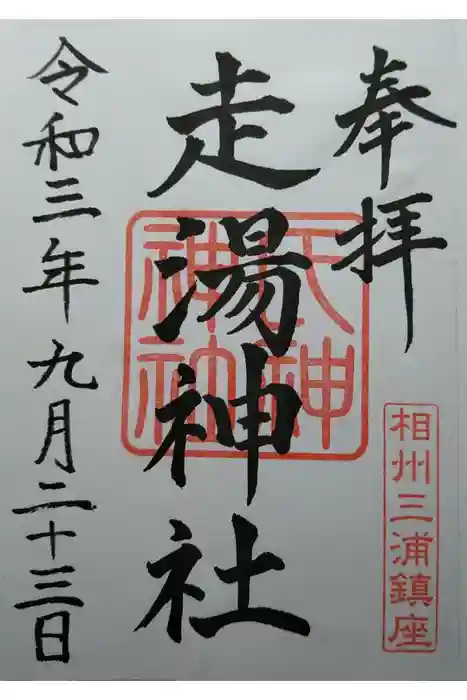 奉拝
相州三浦鎮座
走湯神社
天神神社
令和三年九月二十三日